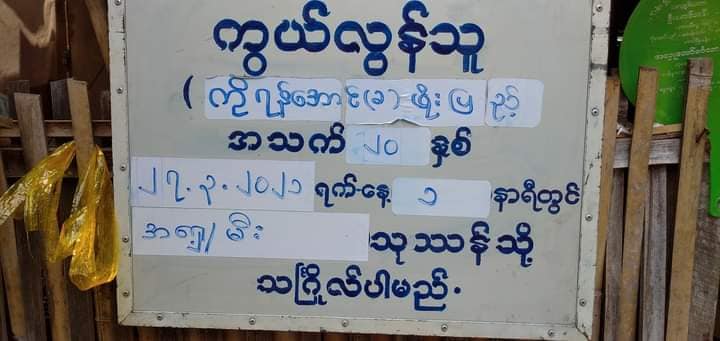 ကွယ်လွန်သူ
( ကိုရန်အောင်(ခ) ဖိုးပြည့်
အသက် ၂၀ နှစ်
၂၇.၃.၂၀၂၁ ရက်-နေ့ ၁ နာရီတွင်
အရှေ့/မီး သုဿန်သို့
သင်္ဂြိုလ်ပါမည်.